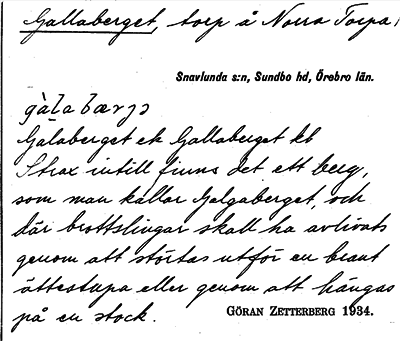 Gallaberget, torp å Norra Torpa,
Snavlunda s:n, Sundbo hd, Örebro län.
gàlabærjɔ
Galaberget ek Gallaberget kb
Strax intill finns det ett berg,
som man kallar Galgaberget, och
där brottslingar skall ha avlivats
genom att störtas utför en brant
ättestupa eller genom att hängas
på en stock.
GÖRAN ZETTERBERG 1934.